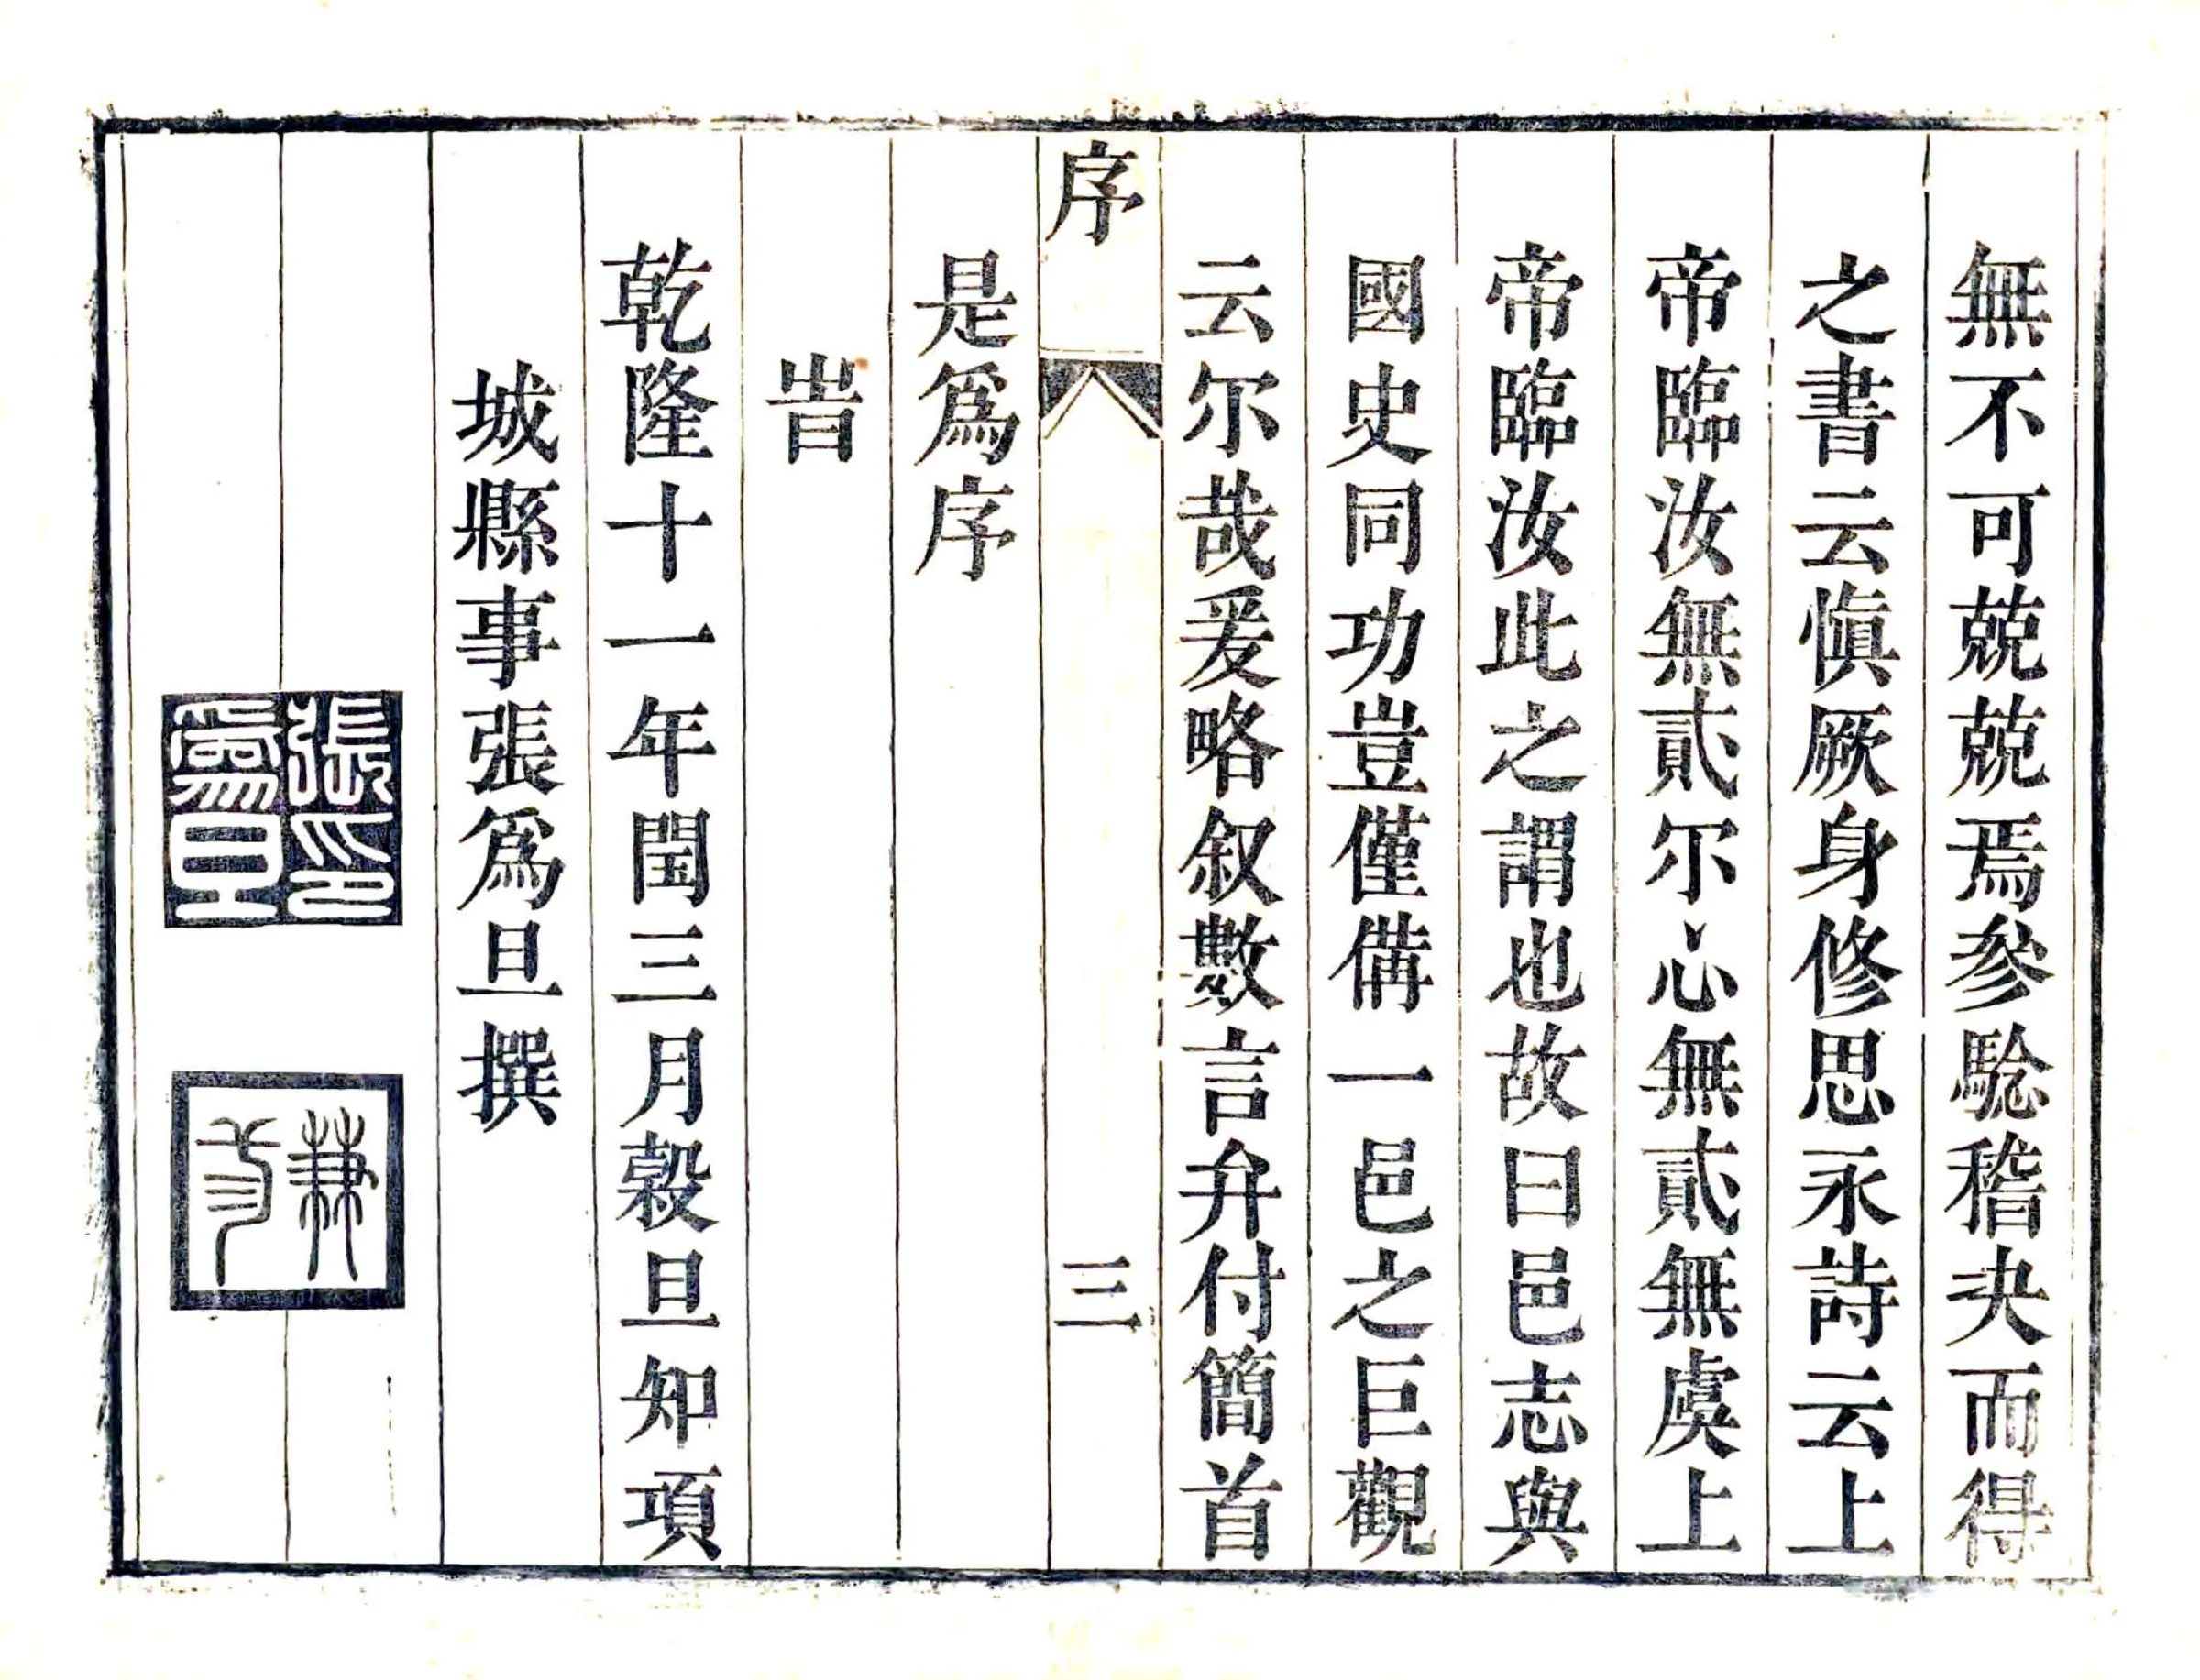 無不可兢兢焉參騐稽夬而得
之書云愼厥身修思永詩云上
帝臨汝無貳尔心無貳無虞上
帝臨汝此之謂也故曰邑志與
國史同功豈僅備一邑之巨觀
云尔哉爰略叙數言弁付簡首
序
三
是爲序
旹
乾隆十一年閏三月糓旦知項
城縣事張爲旦撰
張印爲旦